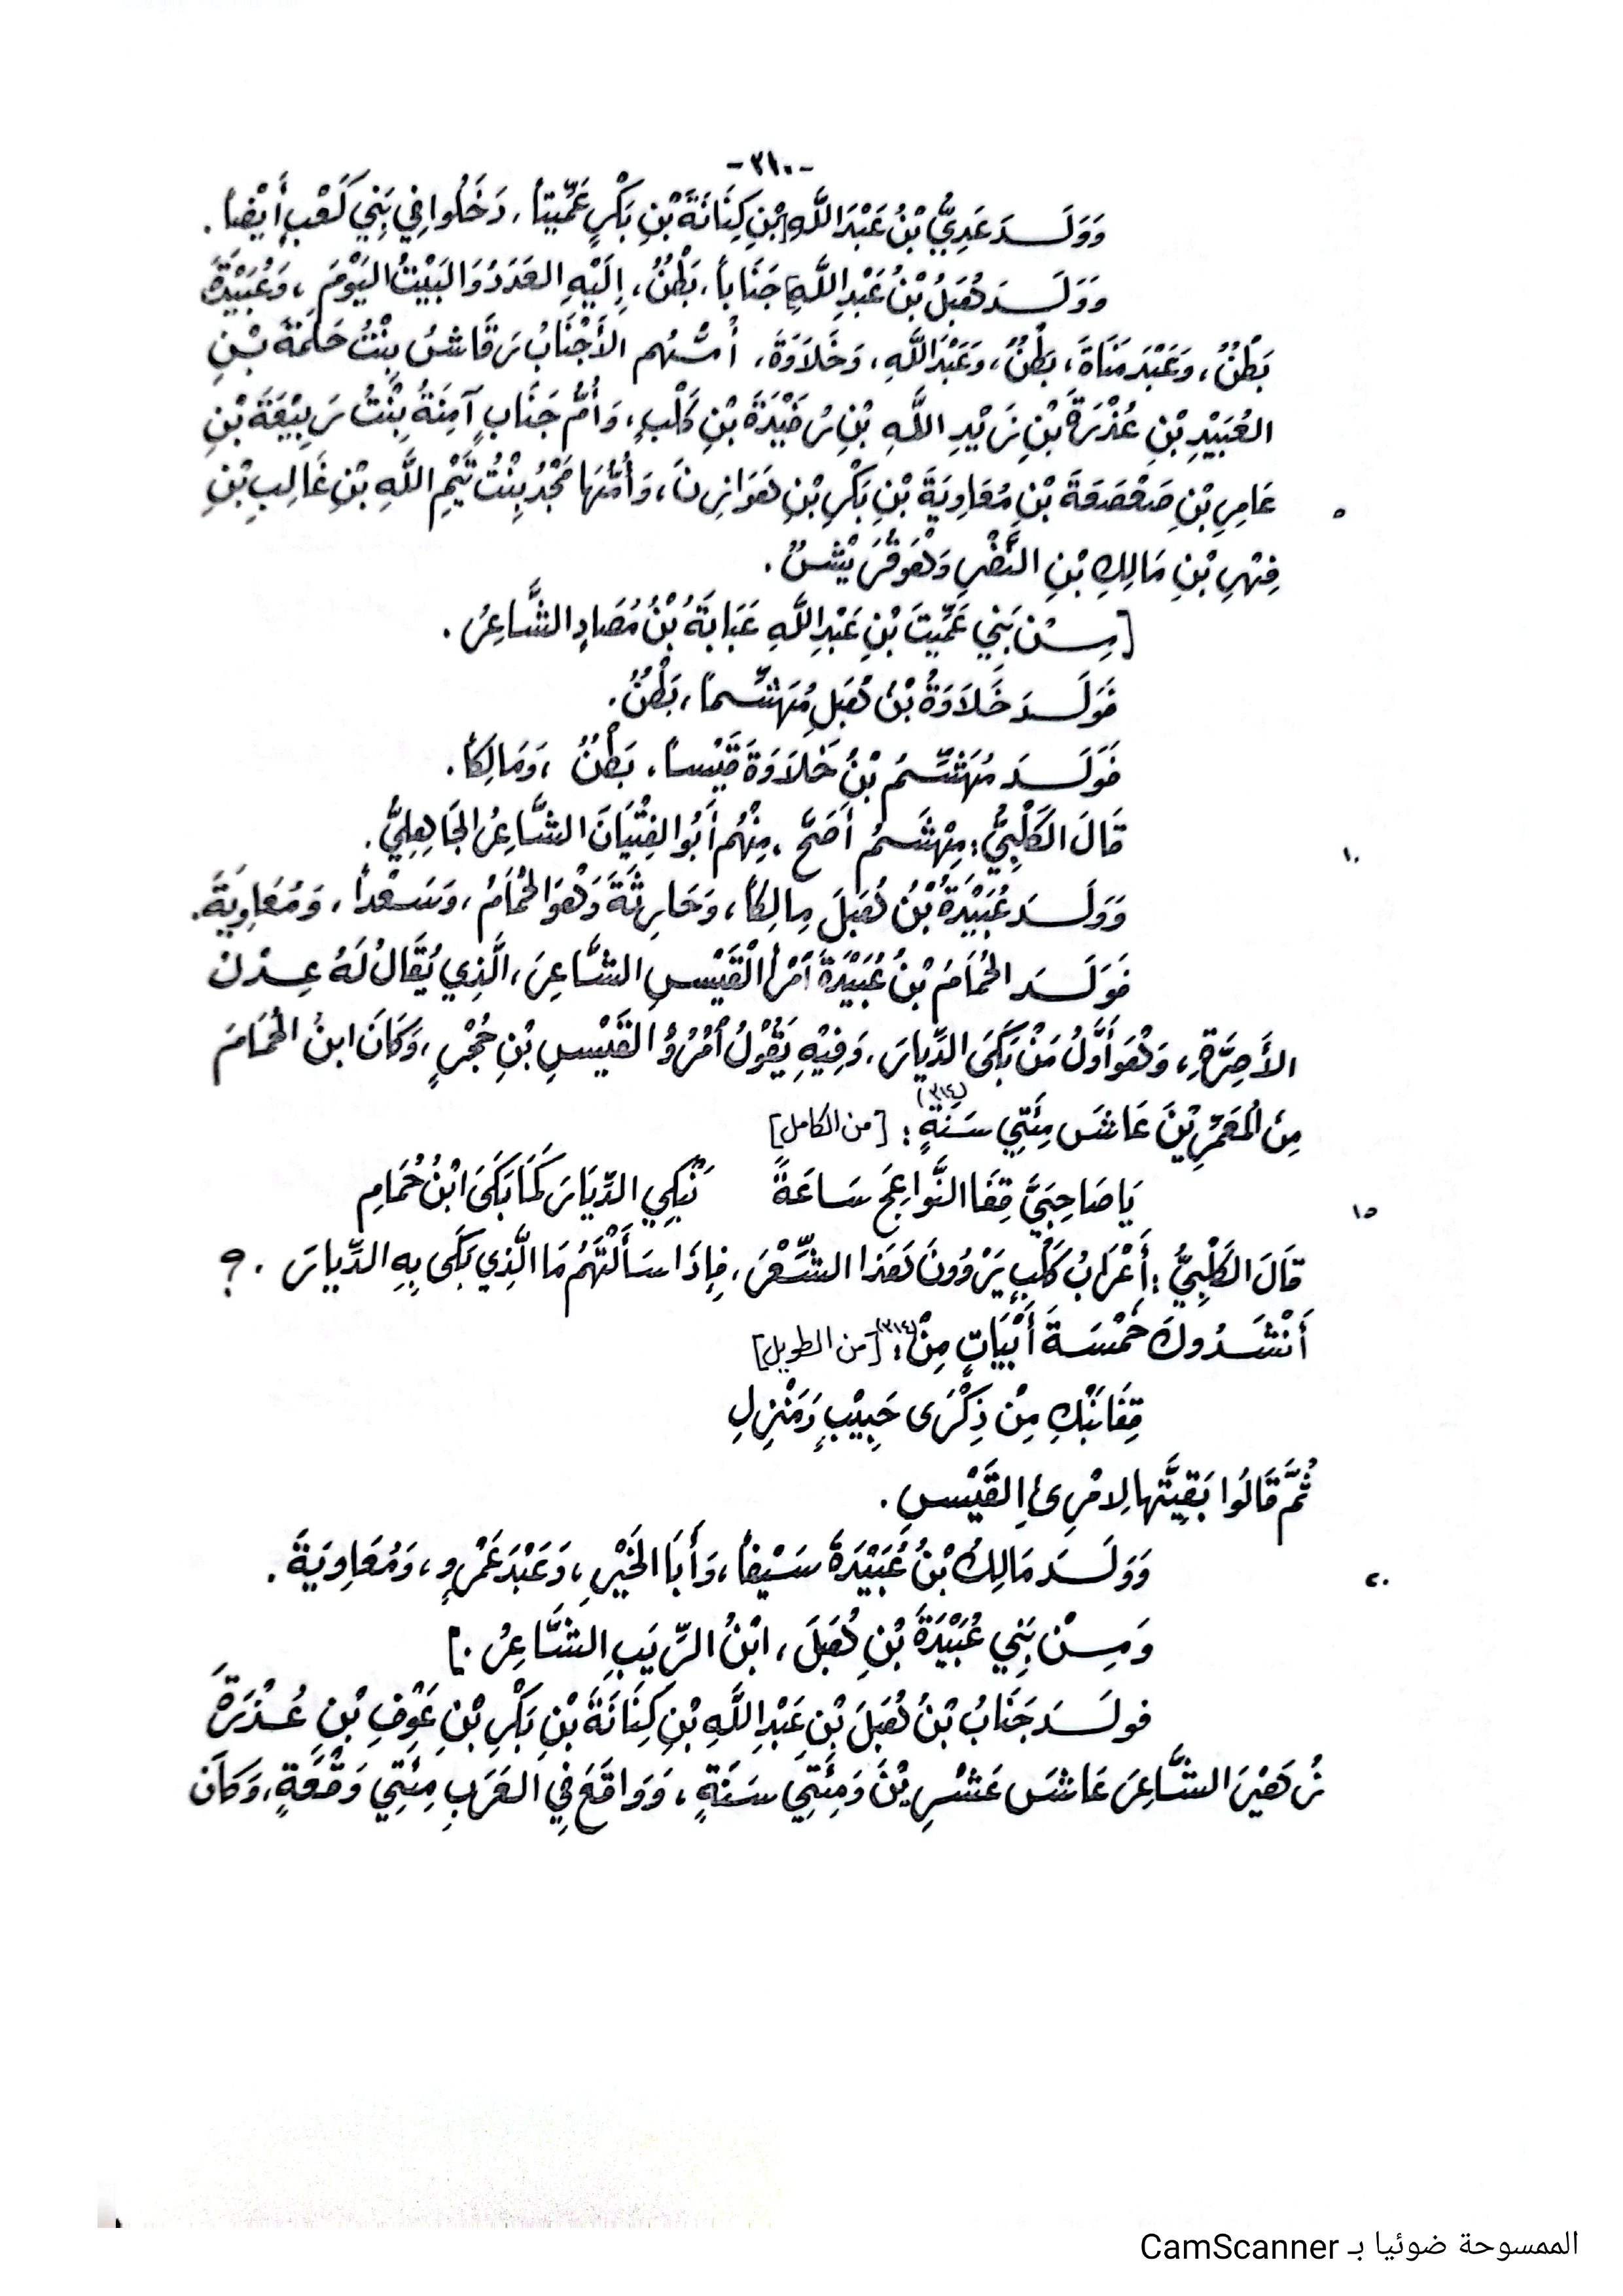 -٣١٠-
وَوَلَـــدَ عَدِيُّ بْنُ عَبْدَاللَّهِ [بْنِ كِنَانَةَ بْنِ بَكْرٍ عَمِّيتاً، دَخَلُوا فِي بَنِي كَعْبٍ أَيْضاً.
وَوَلَـــدَ هُبَلُ بْنُ عَبْدِ اللَّهِ] جَنَاباً، بَطْنٌ، إِلَيْهِ العَدَدُ وَالبَيْتُ اليَوْمَ، وَعُبَيْدَةَ
بَطْنٌ، وَعَبْدَ مَنَاةَ، بَطْنٌ، وَعَبْدَاللَّهِ، وَخَلاَوَةَ، أُمُّـهُم الأَجْنَابُ رَقَاشُ بِنْتُ حَلمَةَ بْـنِ
العُبَيْدِ بْنِ عُذْرَةَ بْنِ زَيْدِ اللَّهِ بْنِ رُفَيْدَةَ بْنِ كَلْبٍ، وَأُمُّ جَنَابٍ آمِنَةُ بِنْتُ رَبِيْعَةَ بْنِ
عَامِرِ بْنِ صَعْصَعَةَ بْنِ مُعَاوِيَةَ بْنِ بَكْرِ بْنِ هَوَازِنَ، وَأُمُّهَا مَجْدُ بِنْتُ تَيْمِ اللَّهِ بْنِ غَالِبِ بْنِ
٥
فِهْرِ بْنِ مَالِكِ بْنِ النَّضْرِ وَهْوَ قُرَيْشٌ.
[مِـــنْ بَنِي عَمِّيتَ بْنِ عَبْدِ اللَّهِ عَبَايَةُ بْنُ مُصَادٍ الشَّاعِرُ.
فَوَلَـــدَ خَلاَوَةُ بْنُ هُبَلٍ مُهَشِّـماً، بَطْنٌ.
فَوَلَـــدَ مُهَشِّـمُ بْنُ خَلاَوَةَ قَيْسـاً، بَطْنٌ، وَمَالِكاً.
قَالَ الكَلْبِيُّ: مِهْشَـمُ أَصَحّ، مِنْهُم أَبُو الفِتْيَانَ الشَّاعِرُ الجَاهِلِيُّ.
١٠
وَوَلَـــدَ عُبَيْدَةُ بْنُ هُبَلَ مالِكاً، وَحَارِثَةَ وَهْوَ الحُمَامُ، وَسَـعْداً، وَمُعَاوِيَةَ.
فَوَلَـــدَ الحُمَامَ بْنُ عُبَيْدَةَ أَمْرأَ الْقَيْسِ الشَّاعِرَ، الَّذِي يُقَالُ لَهُ عِـدْلُ
الأَصِرَّةِ، وَهْوَ أَوَّلُ مَنْ بَكَى الدِّيارَ، وَفِيْهِ يَقُوْلُ أمْرُؤُ القَيْسِ بْنِ حُجْرٍ، وَكَانَ ابنُ الحُمَامَ
مِنَ الْمُعَمَّرِيْنَ عَاشَ مِئَتَي سَـنَةٍ (٣١٤): [من الكامل]
يَا صَاحِبَيَّ قِفَا النَّواعِجَ سَـاعَةً نَبْكِي الدِّيَارَ كَمَا بَكَى ابْنُ حُمَامِ
١٥
قَالَ الكَلْبِيُّ: أَعْرَابُ كَلْبٍ يَرْوُونَ هَذا الشِّـعْرَ، فإِذَا سَـأَلْتَهُم مَا الَّذِي بَكَى بِهِ الدِّيارَ. ؟
أَنْشَـدُوكَ خَمْسَـةَ أَبْيَاتٍ مِنْ: (٣١٤) [من الطويل]
قِفَا نَبْكِ مِنْ ذِكْرَى حَبِيْبٍ وَمَنْزِلِ
ثُمَّ قَالُوا بَقِيَّتَها لِامْرِئِ القَيْسِ.
وَوَلَـــدَ مَالِكُ بْنُ عُبَيْدَةَ سَـيْفاً، وَأَبَا الخَيْرِ، وَعَبْدَ عَمْرٍو، وَمُعَاوِيَةَ.
٢٠
وَمِـــنْ بَنِي عُبَيْدَةَ بْنِ هُبَلَ، ابْنُ الرِّيَبِ الشَّاعِرُ.]
فولَـــدَ جَنَابُ بْنُ هُبَلَ بْنِ عَبْدِ اللَّهِ بْنِ كِنَانَةَ بْنِ بَكْرِ بْنِ عَوْفِ بْنِ عُـذْرَةَ
زُهَيْرَ الشَّاعِرَ عَاشَ عَشْـرِيْنَ وَمِئَتَي سَـنَةٍ، وَوَاقَعَ فِي العَرَبِ مِئَتِي وَقْعَةٍ، وَكَانَ
الممسوحة ضوئيا بـ CamScanner